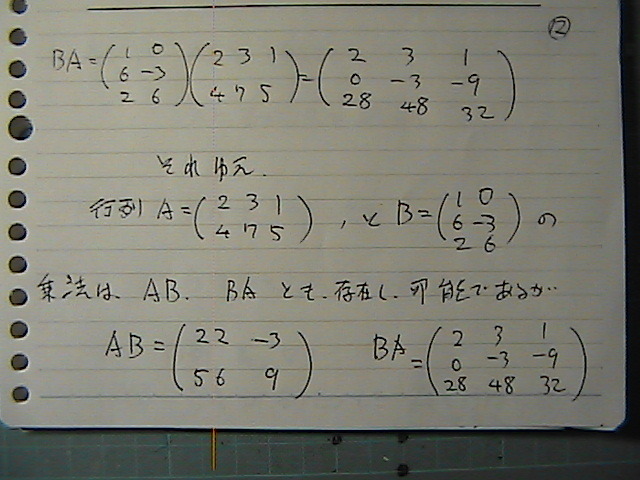 ⑫
BA=(1 0 / 6 -3 / 2 6)(2 3 1 / 4 7 5)=(2 3 1 / 0 -3 -9 / 28 48 32)
それゆえ.
行列 A=(2 3 1 / 4 7 5), と B=(1 0 / 6 -3 / 2 6) の
乗法は、AB. BA とも、存在し、可能であるが…
AB=(22 -3 / 56 9) BA=(2 3 1 / 0 -3 -9 / 28 48 32)